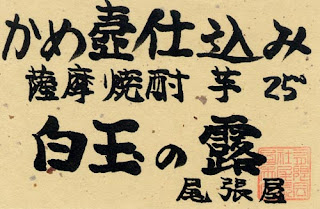 かめ壺仕込み
薩摩焼酎 芋 25°
白玉の露
尾張屋